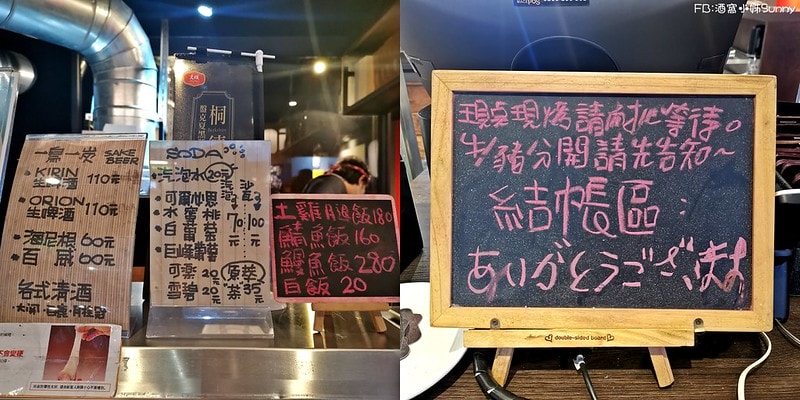 FB:酒窩小姊Sunny
桐
一鳥一炭 SAKE
BEER
KIRIN
生啤酒 110元
ORION
生啤酒 110元
海尼根 60元
百威 60元
各式清酒
SODA
汽泡水20元
可爾必思
水蜜桃
白葡萄
巨峰葡萄
汽泡 70元
沙 100元
可樂 20元
雪碧 20元
原萃 綠茶 35元
土雞腿飯180
鯖魚飯160
鰻魚飯280
白飯 20
現點現烤請耐心等待。
牛豬分開請先告知~
結帳區:
ありがとうございます
double-sided board